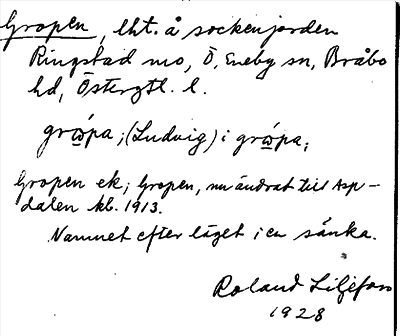 Gropen, lht. å sockenjorden
Ringstad mo, Ö, Eneby sn, Bråbo
hd, Östergtl. l.
grω̲pa; (Ludvig) i grώ̲pa;
Gropen ek; Gropen, nu ändrat till Asp-
dalen kb. 1913.
Namnet efter läget i en sänka.
Roland Liljefors
1928